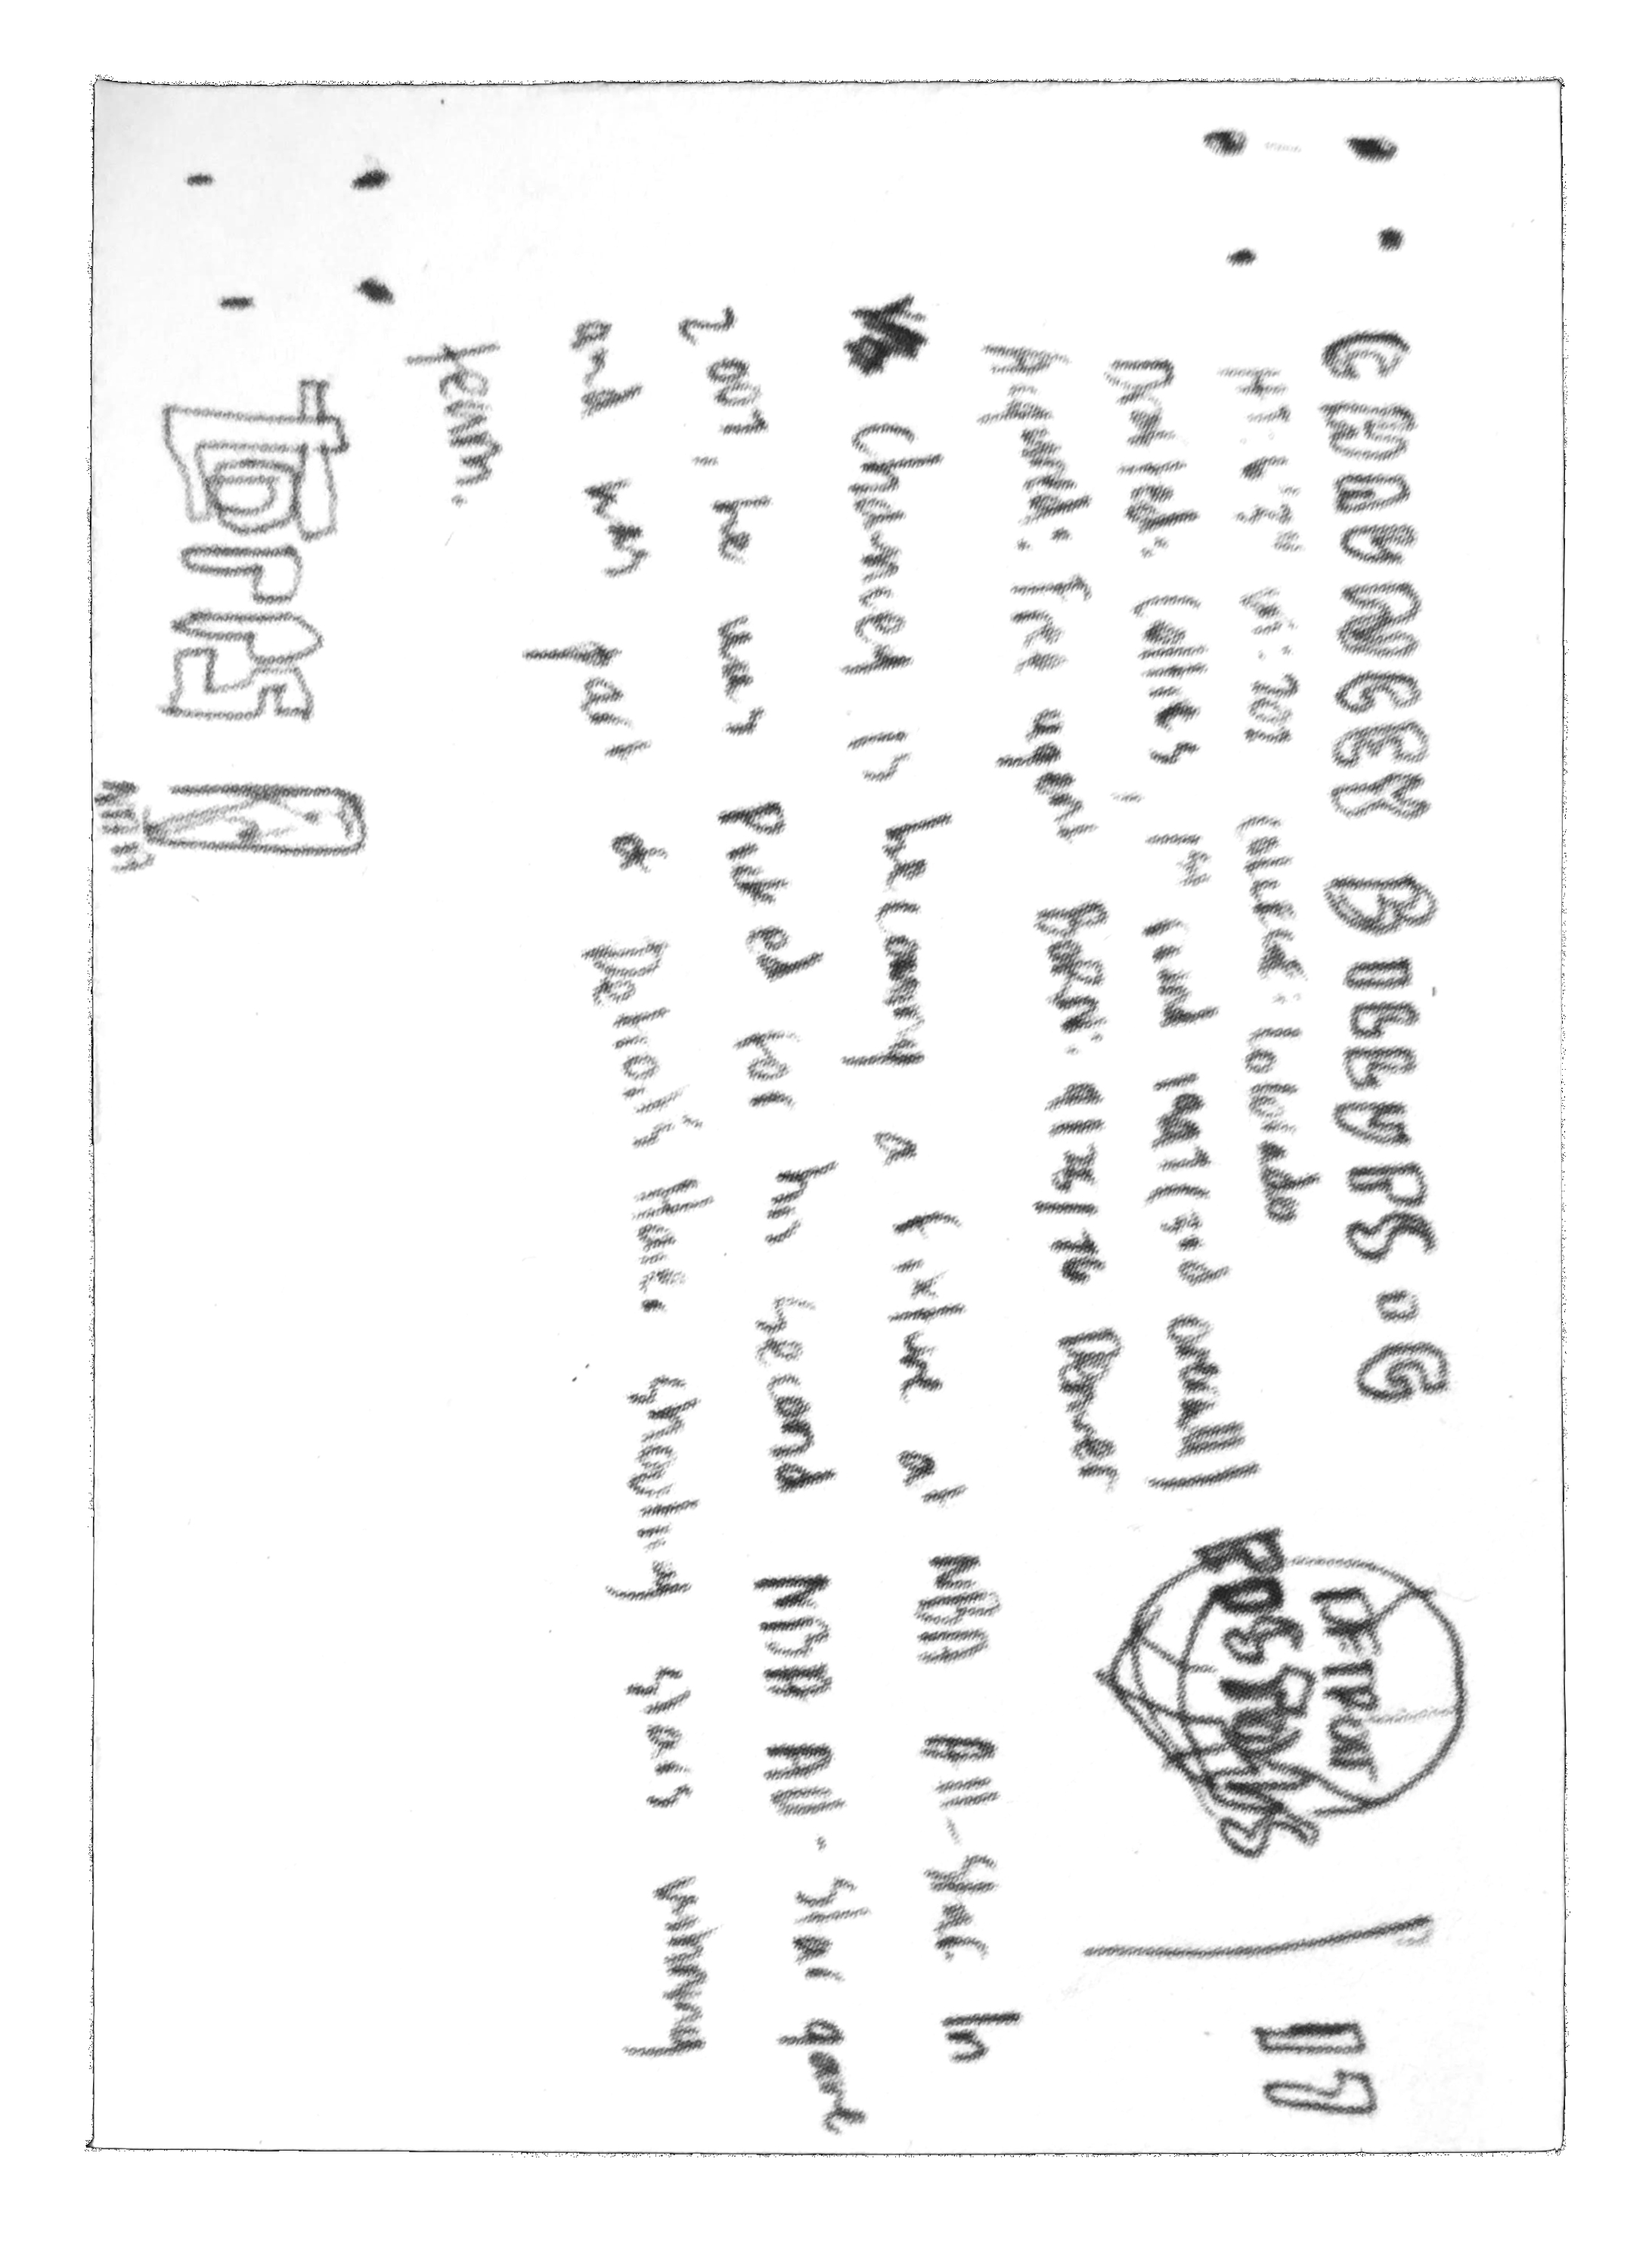 CHAUNCEY BILLUPS • G
Ht: 6'3" Wt: 202 College: Colorado
Drafted: Celtics, 1st rnd 1997 (3rd overall)
Acquired: Free agent Born: Denver
Chauncey is becoming a fixture at NBA All-Star. In
2007, he was picked for his second NBA All-Star game
and was part of Detroit's shooting stars winning
team.
DETROIT
PISTONS
117
NBA